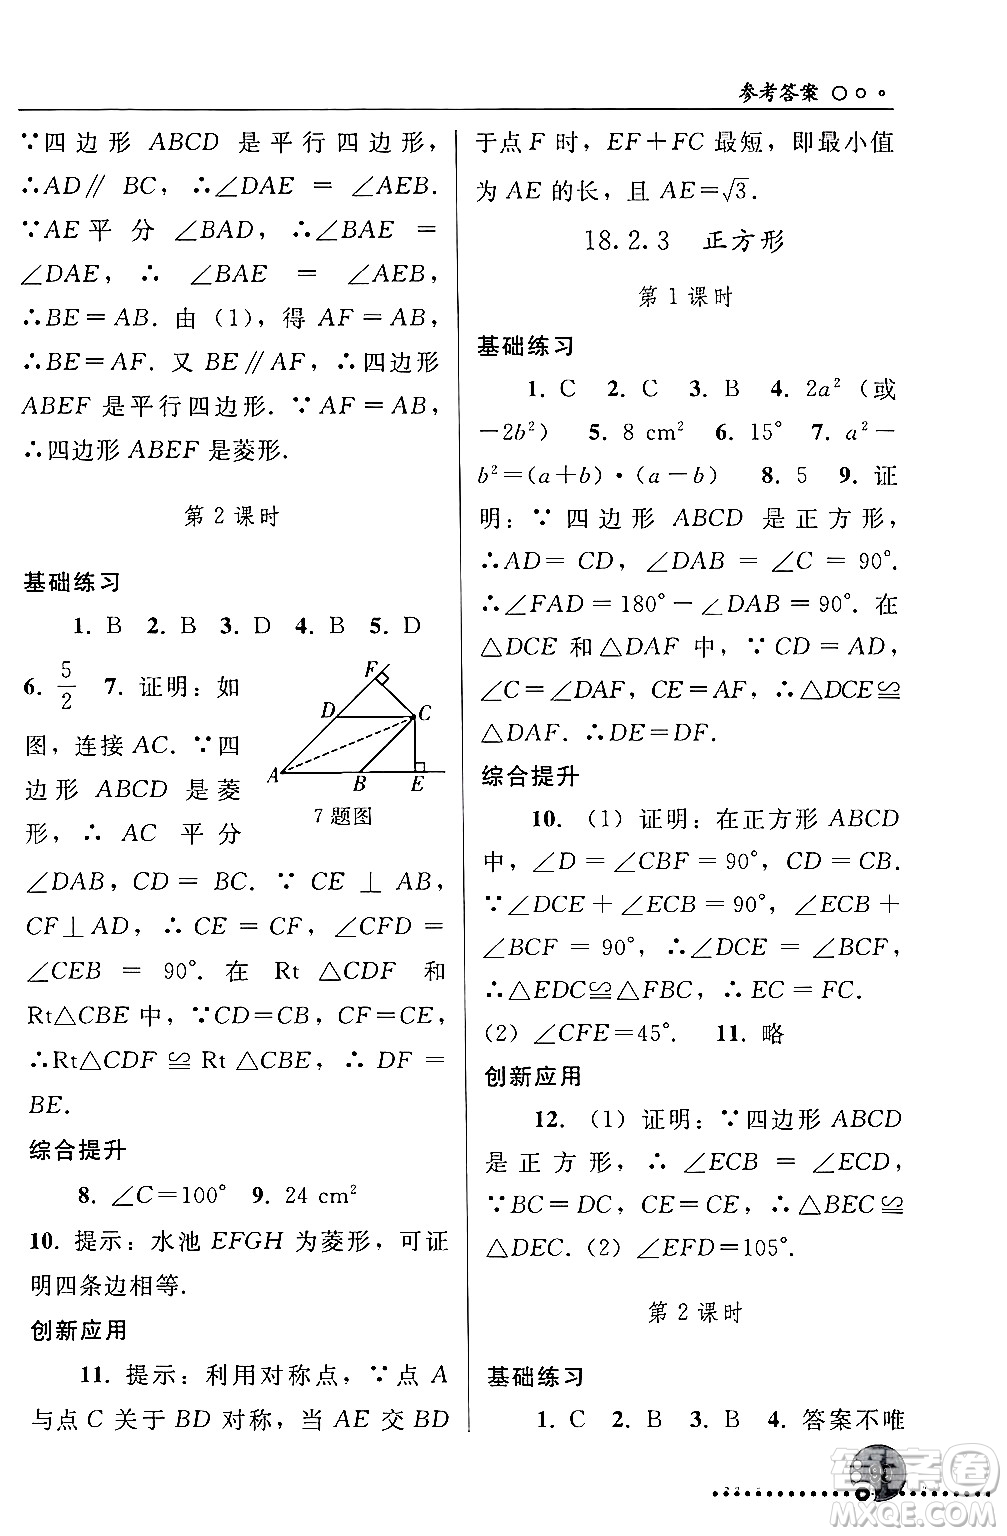 参考答案
∵四边形 ABCD 是平行四边形,
∴AD∥ BC, ∴∠DAE = ∠AEB.
∵AE 平 分 ∠BAD, ∴ ∠BAE =
∠DAE, ∴ ∠BAE = ∠AEB,
∴BE=AB. 由(1),得 AF=AB,
∴BE=AF. 又 BE∥AF, ∴四边形
ABEF 是平行四边形. ∵AF=AB,
∴四边形 ABEF 是菱形.
第 2 课时
基础练习
1. B 2. B 3. D 4. B 5. D
6. 5/2 7. 证明:如
图,连接 AC. ∵四
边形 ABCD 是菱
形, ∴ AC 平分
F
D
C
A
B
E
7 题图
∠DAB, CD = BC. ∵ CE ⊥ AB,
CF⊥AD, ∴ CE = CF, ∠CFD =
∠CEB = 90°. 在 Rt △CDF 和
Rt△CBE 中, ∵CD=CB, CF=CE,
∴Rt△CDF ≌ Rt △CBE, ∴ DF =
BE.
综合提升
8. ∠C=100° 9. 24 cm²
10. 提示:水池 EFGH 为菱形,可证
明四条边相等.
创新应用
11. 提示:利用对称点, ∵点 A
与点 C 关于 BD 对称,当 AE 交 BD
于点 F 时, EF+FC 最短,即最小值
为 AE 的长,且 AE=√3.
18.2.3 正方形
第 1 课时
基础练习
1. C 2. C 3. B 4. 2a²(或
-2b²) 5. 8 cm² 6. 15° 7. a²-
b²=(a+b)·(a-b) 8. 5 9. 证
明: ∵ 四边形 ABCD 是正方形,
∴AD=CD, ∠DAB = ∠C = 90°.
∴∠FAD=180°-∠DAB=90°. 在
△DCE 和△DAF 中, ∵ CD = AD,
∠C=∠DAF, CE=AF, ∴△DCE≌
△DAF. ∴DE=DF.
综合提升
10. (1) 证明:在正方形 ABCD
中, ∠D = ∠CBF = 90°, CD = CB.
∵∠DCE + ∠ECB = 90°, ∠ECB +
∠BCF = 90°, ∴ ∠DCE = ∠BCF,
∴△EDC≌△FBC, ∴ EC = FC.
(2) ∠CFE=45°. 11. 略
创新应用
12. (1) 证明: ∵四边形 ABCD
是正方形, ∴ ∠ECB = ∠ECD,
∵BC= DC, CE = CE, ∴ △BEC ≌
△DEC. (2) ∠EFD=105°.
第 2 课时
基础练习
1. C 2. B 3. B 4. 答案不唯
答案卷
MXQE.COM